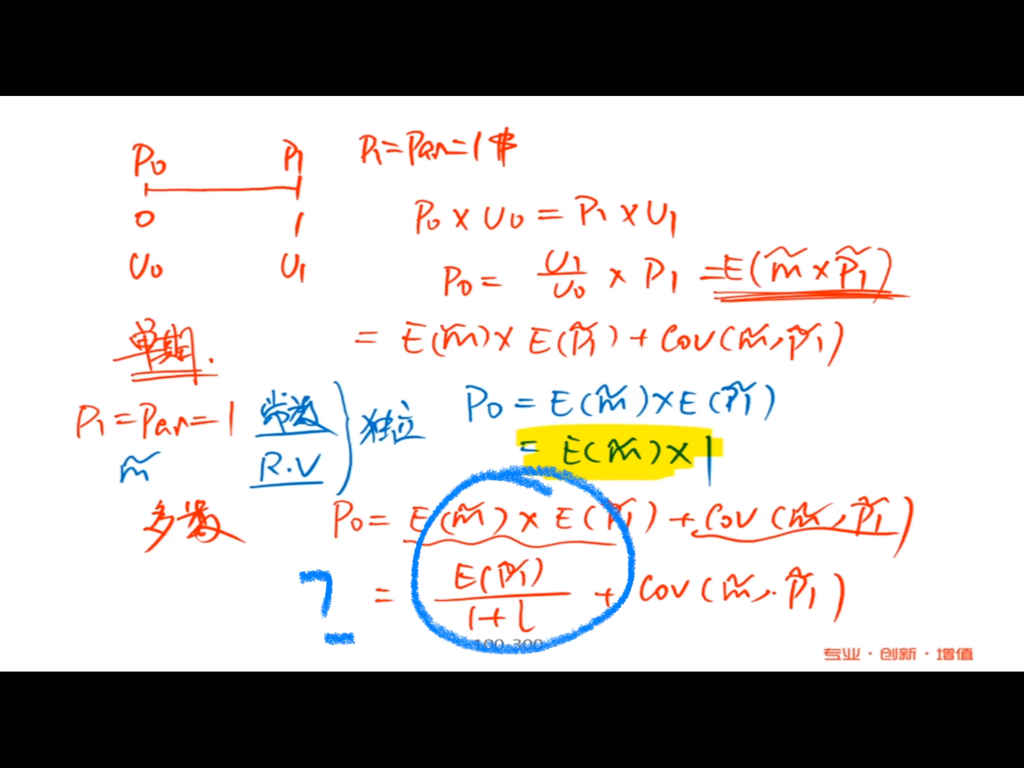 P0 P1 P1=Par=1$
0 1
U0 U1
P0 × U0 = P1 × U1
P0 = U1/U0 × P1 = E(m̃ × P̃1)
单期.
= E(m̃) × E(P̃1) + Cov(m̃, P̃1)
P1=Par=1 常数
m̃ R.V
独立
P0 = E(m̃)×E(P̃1)
= E(m̃)×1
多数 P0 = E(m̃) × E(P̃1) + Cov(m̃, P̃1)
? = E(P̃1)/1+l + Cov(m̃, P̃1)
100-300
专业·创新·增值